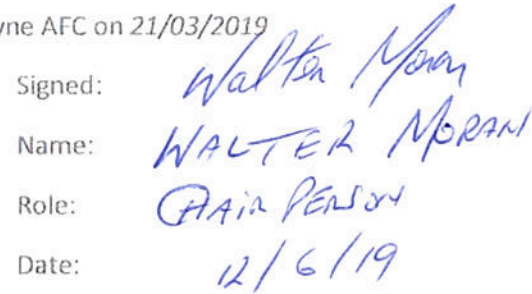 yne AFC on 21/03/2019
Signed: Walter Moran
Name: WALTER MORAN
Role: CHAIR PERSON
Date: 12/6/19